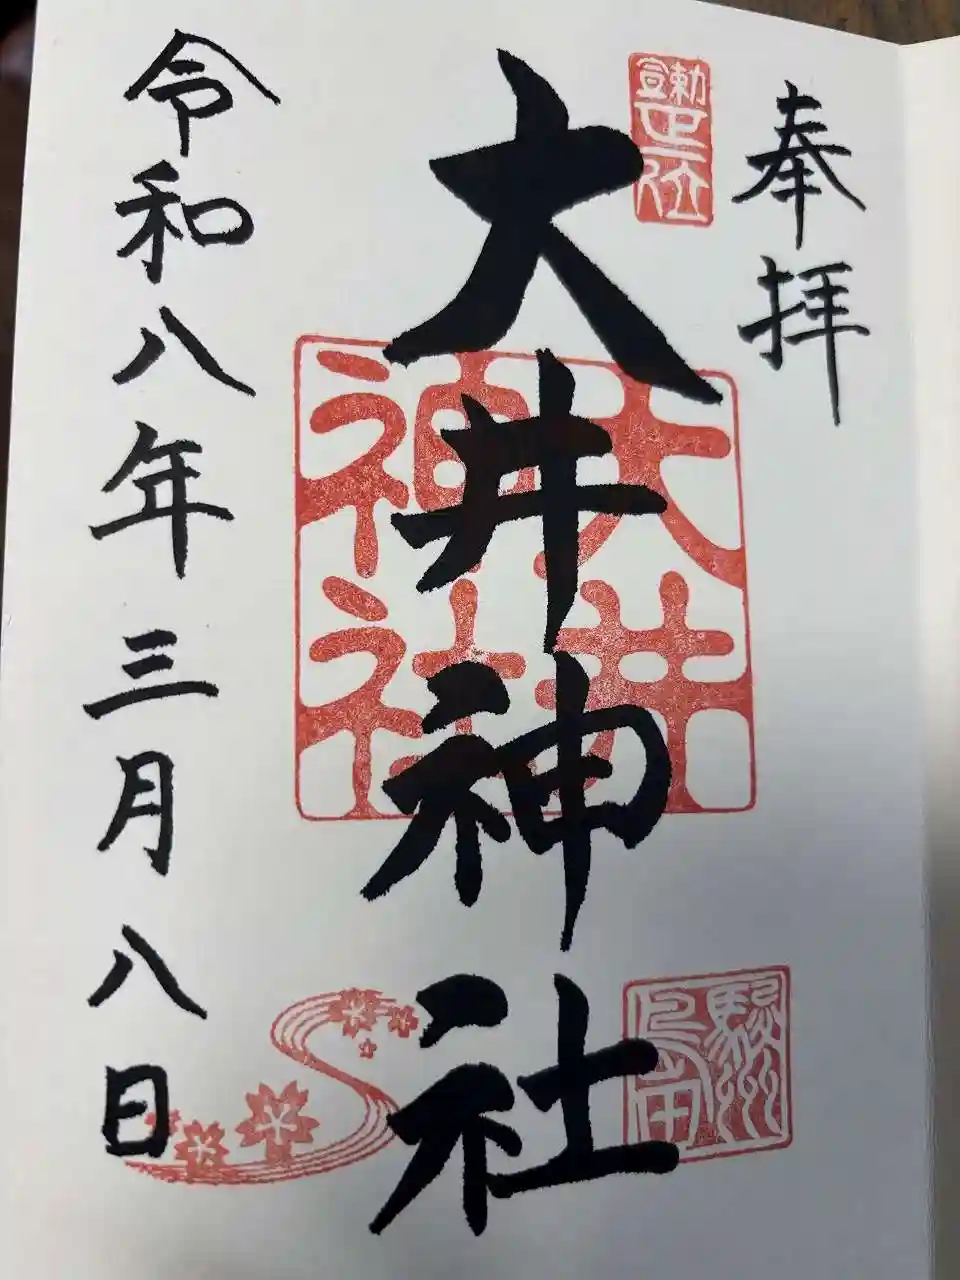 奉拝
勅宣正一位
大井神社
大井神社
駿州島田
令和八年三月八日